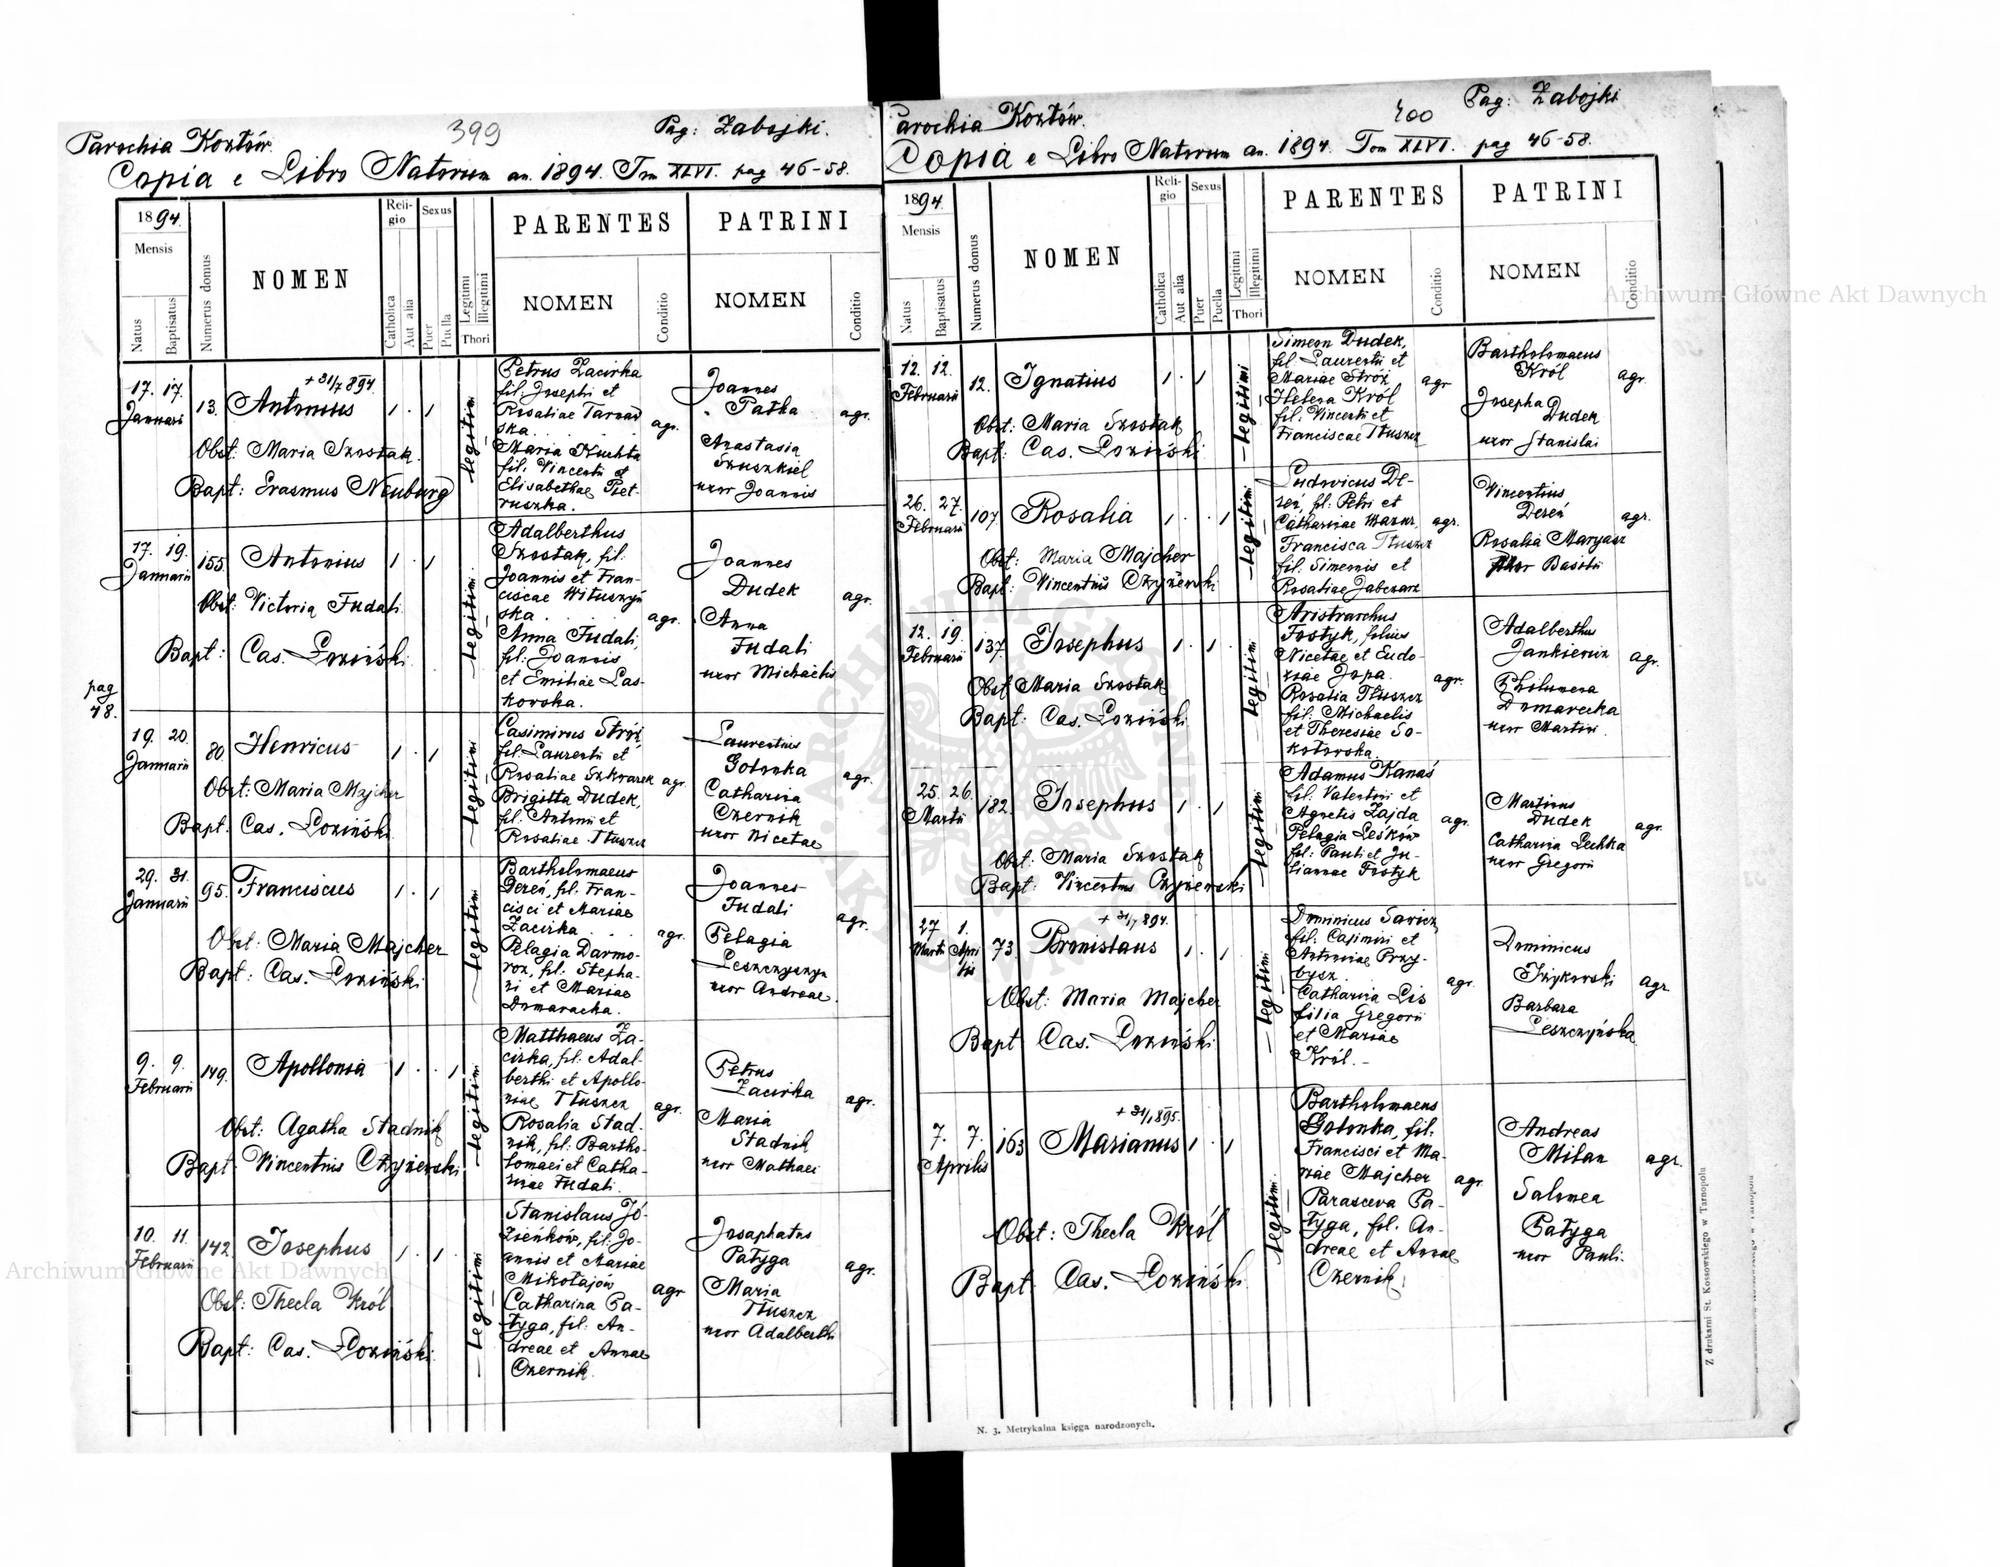 Parochia Kozłów.
399
Pag: Zabojki.
Copia e Libro Natorum an. 1894. Tom XLVI. pag 46-58.
1894.
Mensis
Natus
Baptisatus
Numerus domus
NOMEN
Reli-
gio
Catholica
Aut alia
Sexus
Puer
Puella
Legitimi
Illegitimi
Thori
PARENTES
NOMEN
Conditio
PATRINI
NOMEN
Conditio
17. 17.
Januarii
13.
+ 31/7 894
Antonius
1. 1
legitimi
Obst: Maria Szostak.
Bapt: Erasmus Neuburg
Petrus Zacirka
fil: Josephi et
Rosaliae Tarnad
ska.
Maria Kuchta
fil: Vincentii et
Elisabethae Piet-
ruszka.
agr.
Joannes
Patka
Anastasia
Szuszkiel
uxor Joannis
agr.
17. 19.
Januarii
155
Antonius
1. 1
legitimi
Obst: Victoria Fudali
Bapt: Cas. Łoziński
Adalberthus
Szostak, fil:
Joannis et Fran-
ciscae Wituszyń
ska.
Anna Fudali,
fil: Joannis
et Emiliae Las-
kowska.
agr.
Joannes
Dudek
Anna
Fudali
uxor Michaelis
agr.
pag
48.
19. 20.
Januarii
80.
Henricus
1. 1
legitimi
Obst: Maria Majcher
Bapt. Cas. Łoziński
Casimirus Stróż,
fil: Laurentii et
Rosaliae Szkwarek
Brigitta Dudek,
fil: Antonii et
Rosaliae Tłuszcz
agr.
Laurentius
Gołonka
Catharina
Czernik
uxor Nicetae
agr.
29. 31.
Januarii
95.
Franciscus
1. 1
legitimi
Obst: Maria Majcher
Bapt: Cas. Łoziński
Bartholomaeus
Dereń, fil: Fran-
cisci et Mariae
Zacirka
Pelagia Darmo-
roz, fil: Stepha-
ni et Mariae
Domaracka.
agr.
Joannes
Fudali
Pelagia
Leszczyszyn
uxor Andreae.
agr.
9. 9.
Februarii
149.
Apollonia
1. 1
legitimi
Obst: Agatha Stadnik
Bapt: Vincentius Czyżewski
Matthaeus Za-
cirka, fil: Adal-
berthi et Apollo-
niae Tłuszcz
Rosalia Stad-
nik, fil: Bartho-
lomaei et Catha-
rinae Fudali.
agr.
Petrus
Zacirka
Maria
Stadnik
uxor Mathaei
agr.
10. 11.
Februarii
142.
Josephus
1. 1
legitimi
Obst: Thecla Król
Bapt: Cas. Łoziński.
Stanislaus Jó-
zieńków, fil: Jo-
annis et Mariae
Mikołajów
Catharina Pa-
tyga, fil: An-
dreae et Annae
Czernik.
agr
Josaphatus
Patyga
Maria
Tłuszcz
uxor Adalberthi
agr.
Parochia Kozłów.
400
Pag: Zabojki
Copia e Libro Natorum an. 1894. Tom XLVI. pag 46-58.
1894.
Mensis
Natus
Baptisatus
Numerus domus
NOMEN
Reli-
gio
Catholica
Aut alia
Sexus
Puer
Puella
Legitimi
Illegitimi
Thori
PARENTES
NOMEN
Conditio
PATRINI
NOMEN
Conditio
12. 12.
Februarii
12.
Ignatius
1. 1
legitimi
Obst: Maria Szostak
Bapt: Cas. Łoziński
Simeon Dudek,
fil: Laurentii et
Mariae Stróż
Helena Król
fil: Vincentii et
Franciscae Tłuszcz
agr
Bartholomaeus
Król
Josepha
Dudek
uxor Stanislai
agr.
26. 27.
Februarii
107.
Rosalia
1. 1
legitimi
Obst: Maria Majcher
Bapt: Vincentius Czyżewski
Ludovicus De-
reń, fil: Petri et
Catharinae Mazur,
Francisca Tłuszcz
fil: Simeonis et
Rosaliae Jabczarz
agr.
Vincentius
Dereń
Rosalia Maryasz
uxor Basilii
agr.
12. 19.
Februarii
137.
Josephus
1. 1
legitimi
Obst: Maria Szostak
Bapt: Cas. Łoziński
Aristrarchus
Fostyk, filius
Nicetae et Eudo-
xiae Jopa.
Rosalia Tłuszcz
fil: Michaelis
et Theresiae So-
kołowska.
agr.
Adalberthus
Jankiewicz
Philomena
Domarecka
uxor Martini.
agr.
25. 26.
Martii
182.
Josephus
1. 1
legitimi
Obst: Maria Szostak
Bapt: Vincentius Czyżewski
Adamus Kanaś
fil: Valentini et
Agnetis Zajda
Pelagia Leśków
fil: Pauli et Ju-
liannae Fostyk
agr.
Martinus
Dudek
Catharina Lechka
uxor Gregorii
agr.
27 1.
Martii Apri
lis
73.
+ 31/7 894.
Bronislaus
1. 1
legitimi
Obst: Maria Majcher
Bapt Cas. Łoziński
Dominicus Sawicz,
fil: Casimiri et
Antoniae Przy-
bysz.
Catharina Lis
filia Gregorii
et Mariae
Król.-
agr.
Dominicus
Iżykowski
Barbara
Leszczyńska
agr
7. 7.
Aprilis
163
+ 31/1 895.
Marianus
1. 1
legitimi
Obst: Thecla Król
Bapt: Cas. Łoziński.
Bartholomaeus
Gołonka, fil:
Francisci et Ma-
riae Majcher
Parasceva Pa-
tyga, fil: An-
dreae et Annae
Czernik.
agr.
Andreas
Milan
Salomea
Patyga
uxor Pauli.
agr.
N. 3. Metrykalna księga narodzonych.
Z drukarni St. Kossowskiego w Tarnopolu
Archiwum Główne Akt Dawnych
Archiwum Główne Akt Dawnych